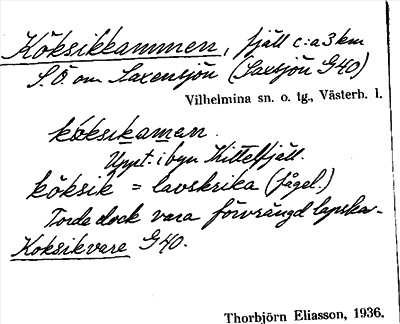 Köksikkammen, fjäll c:a 3 km
S.Ö. om Saxensjön (Saxsjön G40)
Vilhelmina sn. o. tg., Västerb. l.
köksikaman.
Uppt. i byn Kittelfjäll.
köksik = lavskrika (fågel.)
Torde dock vara förvrängd lapska.
Koksikvare G40.
Thorbjörn Eliasson, 1936.